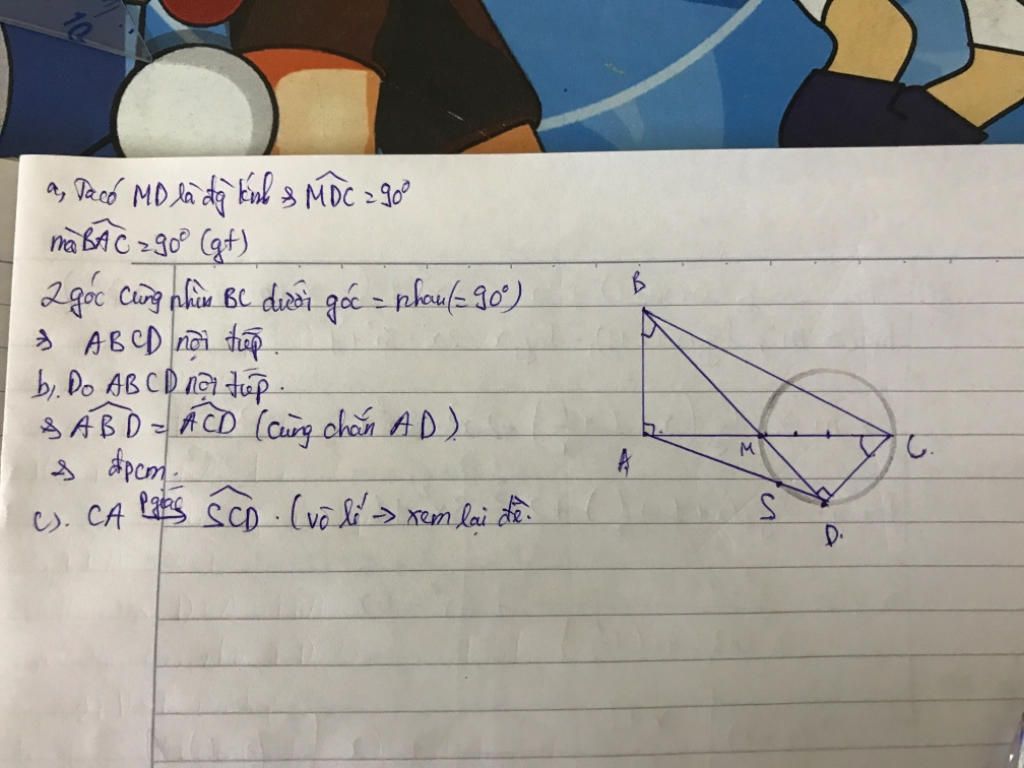 a, Ta có MD là đg kính => MDC = 90°
mà BAC = 90° (gt)
2 góc cùng nhìn BC dưới góc = nhau (= 90°)
=> ABCD nội tiếp.
b). Do ABCD nội tiếp.
=> ABD = ACD (cùng chắn AD)
=> đpcm.
c). CA pgiác SCD. (vô lí → xem lại đề.
B
A
M
C.
S
D.
10